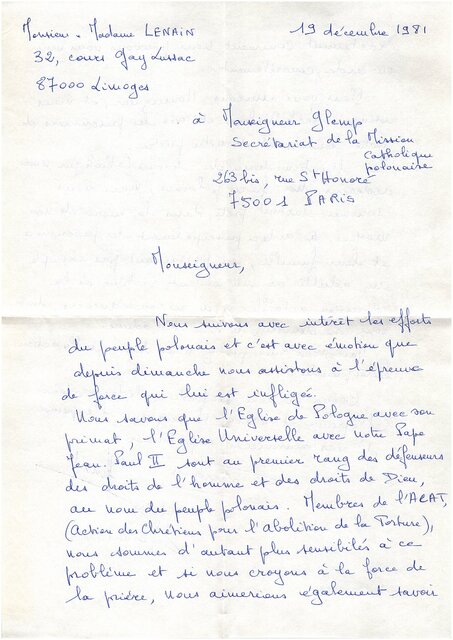 Monsieur. Madame LENAIN
19 décembre 1981
32, cours Gay Lussac
87000 Limoges
à Monseigneur Glemp
Secrétariat de la Mission
Catholique
polonaise
263 bis, rue St Honoré
75001 PARIS
Monseigneur,
Nous suivons avec intérêt les efforts
du peuple polonais et c'est avec émotion que
depuis dimanche nous assistons à l'épreuve
de force qui lui est infligée.
Nous savons que l'Eglise de Pologne avec son
primat, l'Eglise Universelle avec notre Pape
Jean. Paul II sont au premier rang des défenseurs
des droits de l'homme et des droits de Dieu,
au nom du peuple polonais. Membres de l'ACAT,
(Action des Chrétiens pour l'Abolition de la Torture),
nous sommes d'autant plus sensibilés à ce
problème et si nous croyons à la force de
la prière, nous aimerions également savoir